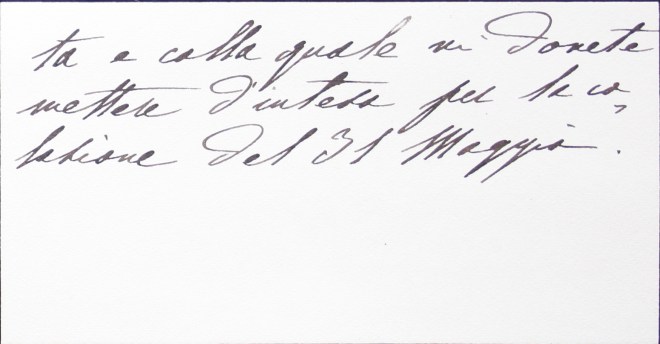 ta e colla quale vi dovete
mettere d'intesa per la co,
lazione del 31 Maggio.